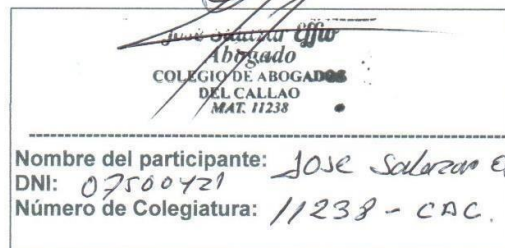 José Salazar Effio
Abogado
COLEGIO DE ABOGADOS
DEL CALLAO
MAT. 11238
Nombre del participante: Jose Salazar E
DNI: 07500421
Número de Colegiatura: 11238 - CAC.